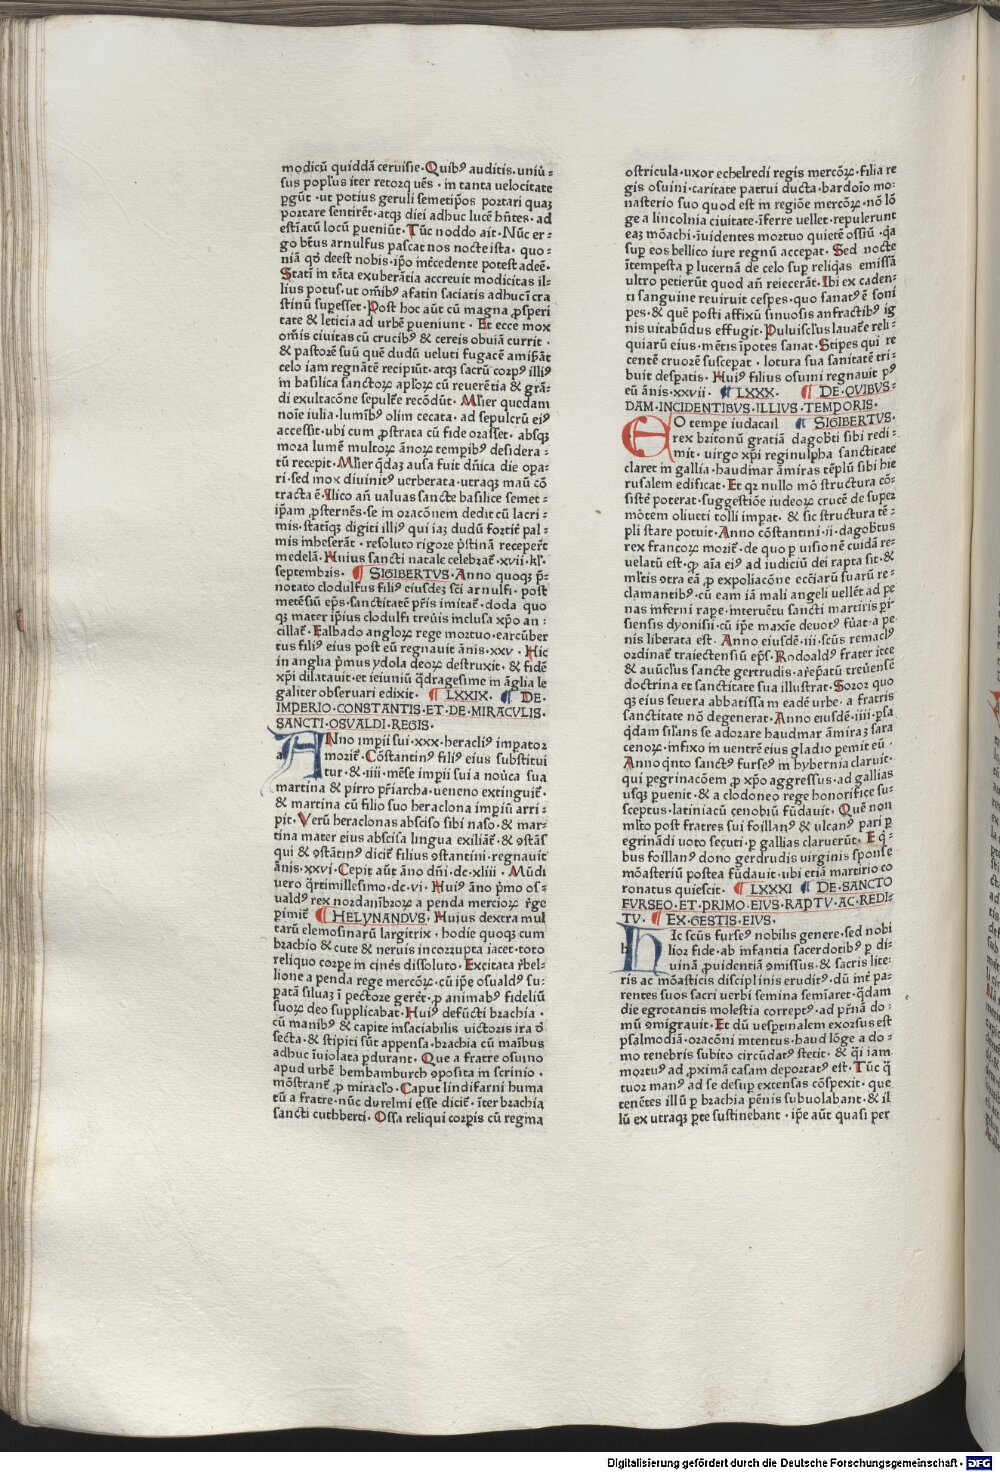 modicū quiddā ceruisie. Quibꝰ auditis. uniū⸗
sus popl'us iter retorquēs. in tanta uelocitate
pgūt. ut potius geruli semetip̄os portari quaꝫ
portare sentirēt. atqꝫ diei adhuc lucē hn̄tes. ad
estīatū locū ꝑueniūt. Tūc noddo ait. Nūc er⸗
go bt̄us arnulfus pascat nos nocte ista. quo⸗
niā qd̄ deest nobis. ip̄o īt'cedente potest adeē.
Statī in tāta exuberātia accreuit modicitas il⸗
lius potus. ut om̄ibꝰ afatin saciatis adhuc ī cra
stinū suꝑesset. Post hoc aūt cū magna ꝓsperi
tate & leticia ad urbē ꝑueniunt. Et ecce mox
om̄is ciuitas cū crucibꝰ & cereis obuiā currit.
& pastorē suū quē dudū ueluti fugacē amisāt
celo iam regnātē recipiūt. atqꝫ sacrū corpꝰ illiꝰ
in basilica sanctoꝝ apl'oꝝ cū reuerētia & grā⸗
di exultacōne sepulk̄e recōdūt. Ml'ier quedam
noīe iulia. lumībꝰ olim cecata. ad sepulcrū eiꝰ
accessit. ubi cum ꝓstrata cū fide orasset. absqꝫ
mora lumē multoꝝ ānoꝝ temꝑibꝰ desidera⸗
tū recepit. Ml'ier q̄daꝫ ausa fuit dn̄ica die opa⸗
ri. sed mox diuinitꝰ uerberata. utraqꝫ maū cō
tracta ē. Ilico an̄ ualuas sancte basilice semet⸗
ip̄am ꝓsternēs. se in oracōnem dedit cū lacri⸗
mis. statīqꝫ digiti illiꝰ qui iaꝫ dudū fortit' pal⸗
mis inheserāt. resoluto rigore pristinā receper̄t
medelā. Huius sancti natale celebrat̄. xvii. kl'.
septembris. ¶ SIGIBERTVS. Anno quoqꝫ p̄⸗
notato clodulfus filiꝰ eiusdeꝫ sc̄i arnulfi. post
metēsiū ep̄s. sanctitatē pr̄is imitat̄. doda quo
qꝫ mater ip̄ius clodulfi treūis inclusa xp̄o an⸗
cillat̄. Ealbado angloꝝ rege mortuo. earcūber
tus filiꝰ eius post eū regnauit ānis. xxv. Hic
in anglia p̄mus ydola deoꝝ destruxit. & fidē
xp̄i dilatauit. et ieiuniū q̄dragesime in āglia le
galiter obseruari edixit. ¶ LXXIX. ¶ DE.
IMPERIO. CONSTANTIS. ET. DE. MIRACVLIS.
SANCTI. OSVALDI. REGIS.
ANno impii sui. xxx. heracliꝰ impator
morit̄. Cōstantinꝰ filiꝰ eius substitui
tur. & .iiii. mēse impii sui a nouca sua
martina & pirro pr̄iarcha. ueneno extinguit̄.
& martina cū filio suo heraclona impiū arri⸗
pit. Verū heraclonas absciso sibi naso. & mar⸗
tina mater eius abscisa lingua exiliāt̄. & ꝯstās
qui & ꝯstātinꝰ dicit̄ filius ꝯstantini. regnauit
ānis. xxvi. Cepit aūt āno dn̄i. dc. xliii. Mūdi
uero q̄rtimillesimo. dc. vi. Huiꝰ āno p̄mo os⸗
ualdꝰ rex nordanibroꝝ a penda mercioꝝ rege
ꝑimit̄. ¶ HELYNANDVS. Huius dextra mul
tarū elemosinarū largitrix. hodie quoqꝫ cum
brachio & cute & neruis incorrupta iacet. toto
reliquo corꝑe in cinēs dissoluto. Excitata r̄bel⸗
lione a penda rege mercōꝝ. cū ip̄e osualdꝰ su⸗
ꝑatā siluaꝫ ī pectore gerēt. ꝓ animabꝰ fideliū
suoꝝ deo supplicabat. Huiꝰ defūcti brachia.
cū manibꝰ & capite insaciabilis uictoris ira d̄
secta. & stipiti sūt appensa. brachia cū maībus
adhuc īuiolata ꝑdurant. Que a fratre osuino
apud urbē bembamburch ꝯposita in scrinio.
mōstrant̄ ꝓ miracl'o. Caput lindifarni huma
tū a fratre. nūc durelmi esse dicit̄. īter brachia
sancti cuthberti. Ossa reliqui corꝑis cū regina
ostricula. uxor echelredi regis mercōꝝ. filia re
gis osuini. caritate patrui ducta. bardoīo mo⸗
nasterio suo quod est in regiōe mercōꝝ. nō lō
ge a lincolnia ciuitate. īferre uellet. repulerunt
eaꝫ mōachi. īuidentes mortuo quietē ossiū. q̄a
suꝑ eos bellico iure regnū acceꝑat. Sed nocte
ītempesta ꝑ lucernā de celo suꝑ reliq̄as emissā
ultro petierūt quod an̄ reiecerāt. Ibi ex caden⸗
ti sanguine reuiruit cespes. quo sanatꝰ ē soni
pes. & quē posti affixū sinuosis anfractibꝰ ig
nis uitabūdus effugit. Puluiscl'us lauat̄e reli⸗
quiarū eius. mētis īpotes sanat. Stipes qui re
centē cruorē susceꝑat. lotura sua sanitatē tri⸗
buit desꝑatis. Huiꝰ filius osuini regnauit pꝰ
eū ānis. xxvii. ¶ LXXX. ¶ DE. QVIBVS⸗
DAM. INCIDENTIBVS. ILLIVS. TEMPORIS.
EO tempe iudacail ¶ SIGIBERTVS.
rex britonū gratiā dagob̄ti sibi redi⸗
mit. uirgo xp̄i reginulpha sanctitate
claret in gallia. haudmar āmiras tēplū sibi hie
rusalem edificat. Et qꝛ nullo mō structura cō⸗
sistē poterat. suggestiōe iudeoꝝ crucē de super
mōtem oliueti tolli impat. & sic structura tē⸗
pli stare potuit. Anno cōstantini. ii. dagob̄tus
rex francoꝝ morit̄. de quo ꝑ uisionē cuidā re⸗
uelatū est. qꝫ aīa eiꝰ ad iudiciū dei rapta sit. &
ml'tis ꝯtra eā ꝓ expoliacōne eccl'iarū suarū re⸗
clamantibꝰ. cū eam iā mali angeli uellēt ad pe
nas inferni rape. interuētu sancti martiris pi'
siensis dyonisii. cū ip̄e maxīe deuotꝰ fūat. a pe
nis liberata est. Anno eiusdē. iii. sc̄us remaclꝰ
ordinat̄ traiectensiū ep̄s. Rodoaldꝰ frater itte
& aūucl'us sancte gertrudis. ar̄epatū treuēnsē
doctrina et sanctitate sua illustrat. Soror quo
qꝫ eius seuera abbatissa in eadē urbe. a fratris
sanctitate nō degenerat. Anno eiusdē. iiii. ꝑsa
q̄dam sil'ans se adorare haudmar āmiraꝫ sara
cenoꝝ. infixo in uentrē eius gladio ꝑemit eū.
Anno q̄nto sanctꝰ furseꝰ in hybernia claruit.
qui peregrinacōem ꝓ xp̄o aggressus. ad gallias
usqꝫ ꝑuenit. & a clodoneo rege honorifice su⸗
sceptus. latiniacū cenobiū fūdauit. Quē non
ml'to post fratres sui foillanꝰ & ulcanꝰ pari ꝑ
egrinādi uoto secuti. ꝑ gallias claruerūt. E q̄⸗
bus foillanꝰ dono gerdrudis uirginis sponse
mōasteriū postea fūdauit. ubi etiā martirio co
ronatus quiescit. ¶ LXXXI ¶ DE. SANCTO
FVRSEO. ET. PRIMO. EIVS. RAPTV. AC. REDI⸗
TV. ¶ EX. GESTIS. EIVS.
HIc sc̄us furseꝰ nobilis genere. sed nobi
lior fide. ab infantia sacerdotibꝰ ꝑ di⸗
uinā ꝓuidentiā ꝯmissus. & sacris lite⸗
ris ac mōasticis disciplinis eruditꝰ. dū īnt' pa⸗
rentes suos sacri uerbi semina semiaret. q̄dam
die egrotantis molestia correptꝰ. ad pr̄nā do⸗
mū ꝯmigrauit. Et dū uesꝑtinalem exorsus est
psalmodiā. oracōni intentus. haud lōge a do⸗
mo tenebris subito circūdatꝰ stetit. & q̄i iam
mortuꝰ ad ꝓximā casam deportatꝰ est. Tūc q̄
tuor manꝰ ad se desuꝑ extensas cōspexit. que
tenētes illū ꝑ brachia pēnis subuolabant. & il
lū ex utraqꝫ ꝑte sustinebant. ip̄e aūt quasi per
Digitalisierung gefördert durch die Deutsche Forschungsgemeinschaft - DFG